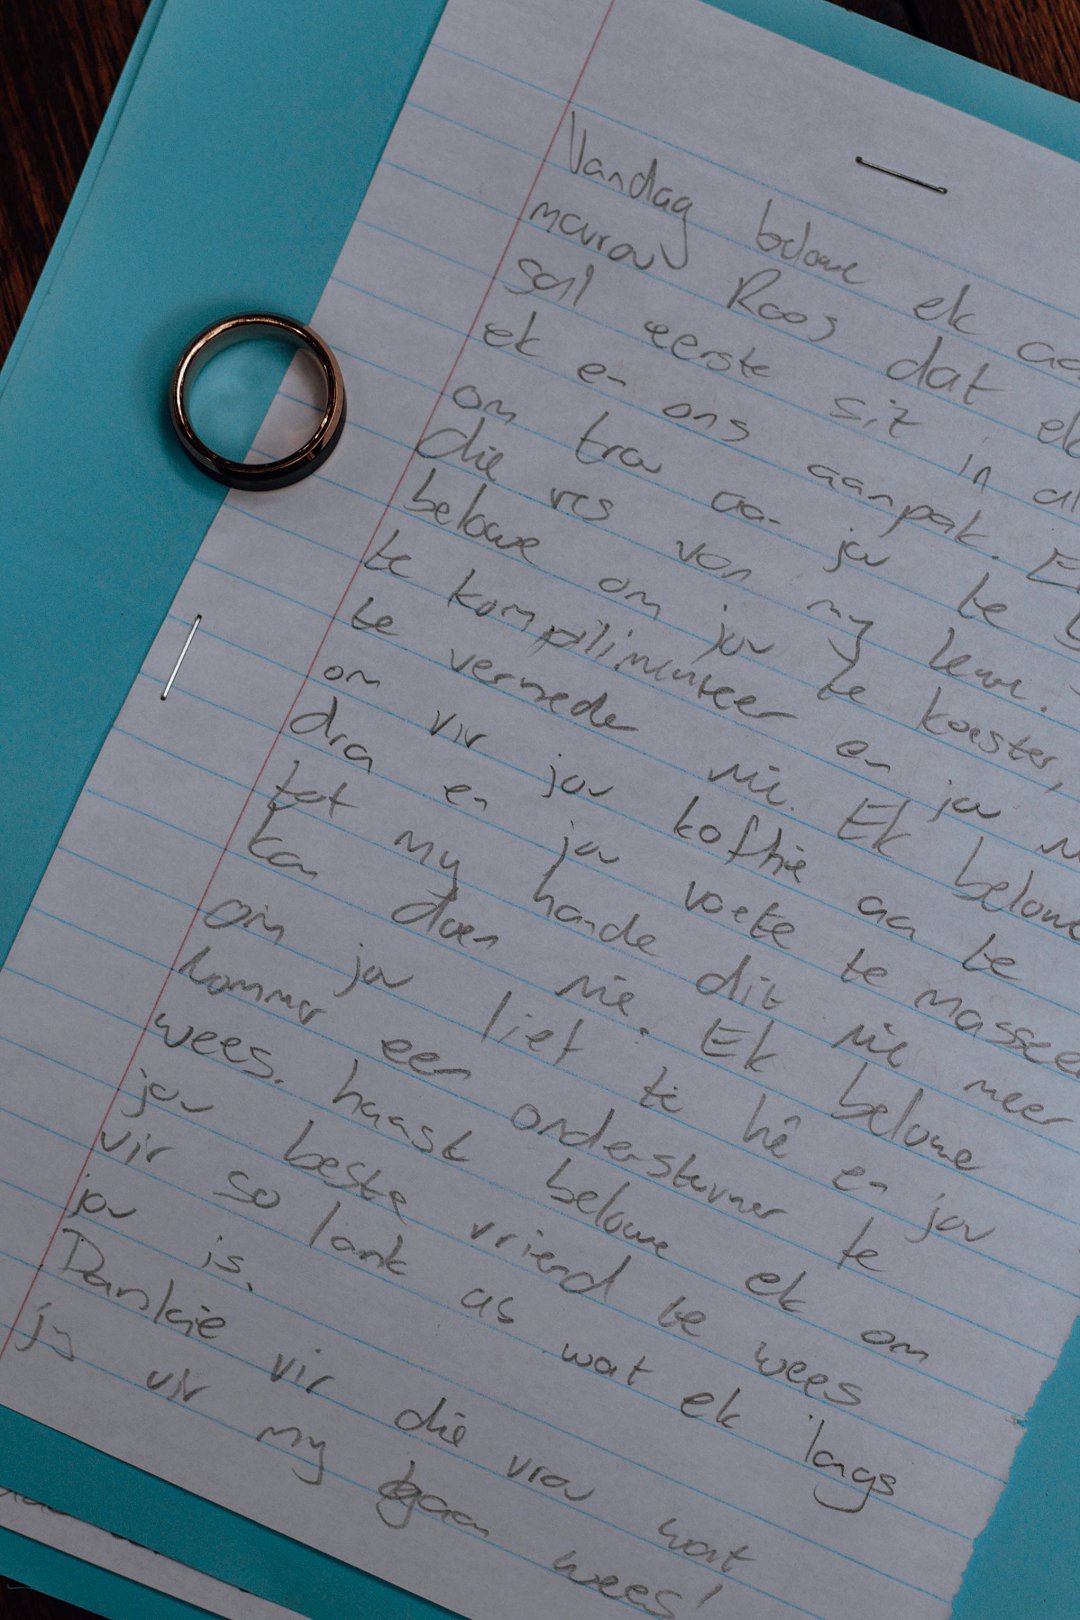 Vandag belowe ek aa
mevrou Roos dat ek
sal eerste sit in al
ek en ons aanpak. Ek
om trou aan jou te
die res van my lewe.
belowe om jou te koester,
te kompilimenteer en jou n
te verneder nie. Ek belowe
om vir jou koffie aan te
dra en jou voete te massee
tot my hande dit nie meer
kan doen nie. Ek belowe
om jou lief te hê en jou
nommer een ondersteuner te
wees. haask belowe ek om
jou beste vriend te wees
vir so lank as wat ek langs
jou is.
Dankie vir die vrou wat
jy vir my gaan wees!